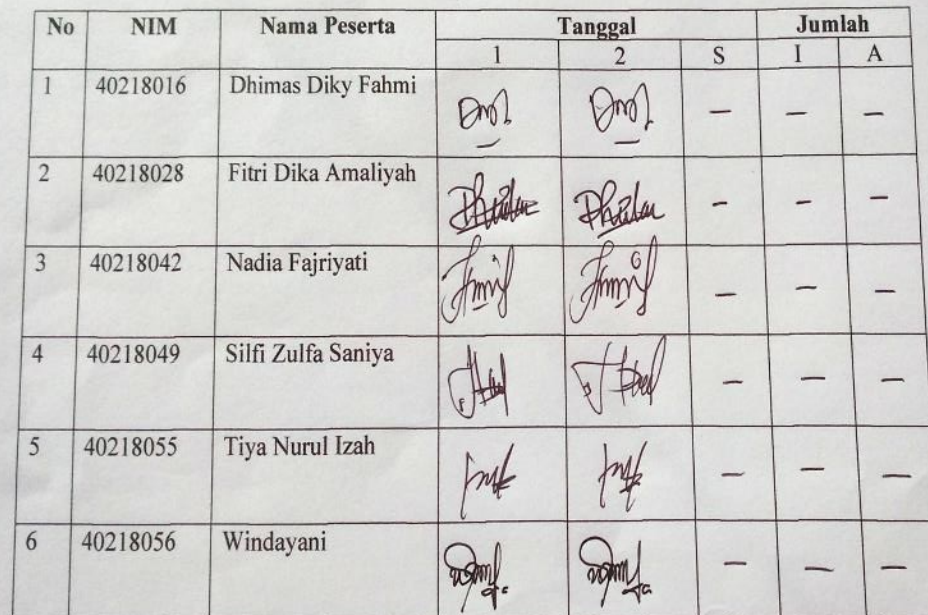 No NIM Nama Peserta Tanggal Jumlah
1 2 S I A
1 40218016 Dhimas Diky Fahmi – – –
2 40218028 Fitri Dika Amaliyah – – –
3 40218042 Nadia Fajriyati – – –
4 40218049 Silfi Zulfa Saniya – – –
5 40218055 Tiya Nurul Izah – – –
6 40218056 Windayani – – –